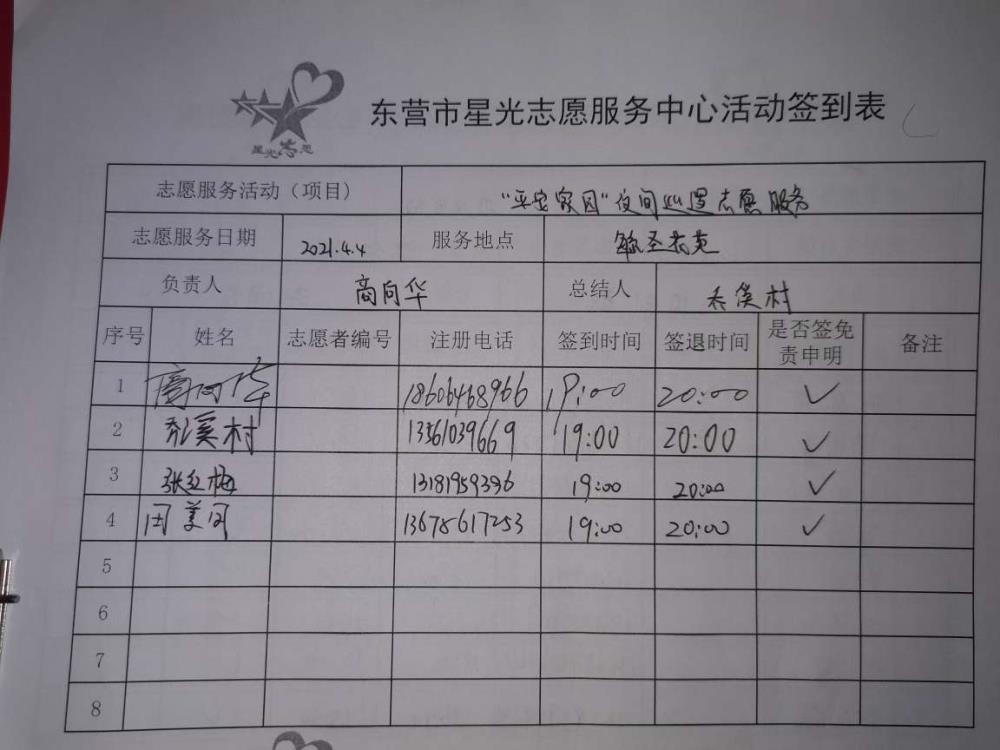 星光志愿
东营市星光志愿服务中心活动签到表
志愿服务活动（项目） “平安家园”夜间巡逻志愿服务
志愿服务日期 2021.4.4 服务地点
负责人 商向华 总结人 村
序号 姓名 志愿者编号 注册电话 签到时间 签退时间 是否签免责申明 备注
1 商向华 18606468966 19:00 20:00 ✓
2 村 13561039669 19:00 20:00 ✓
3 张红梅 13181959396 19:00 20:00 ✓
4 周美 13678617253 19:00 20:00 ✓
5
6
7
8